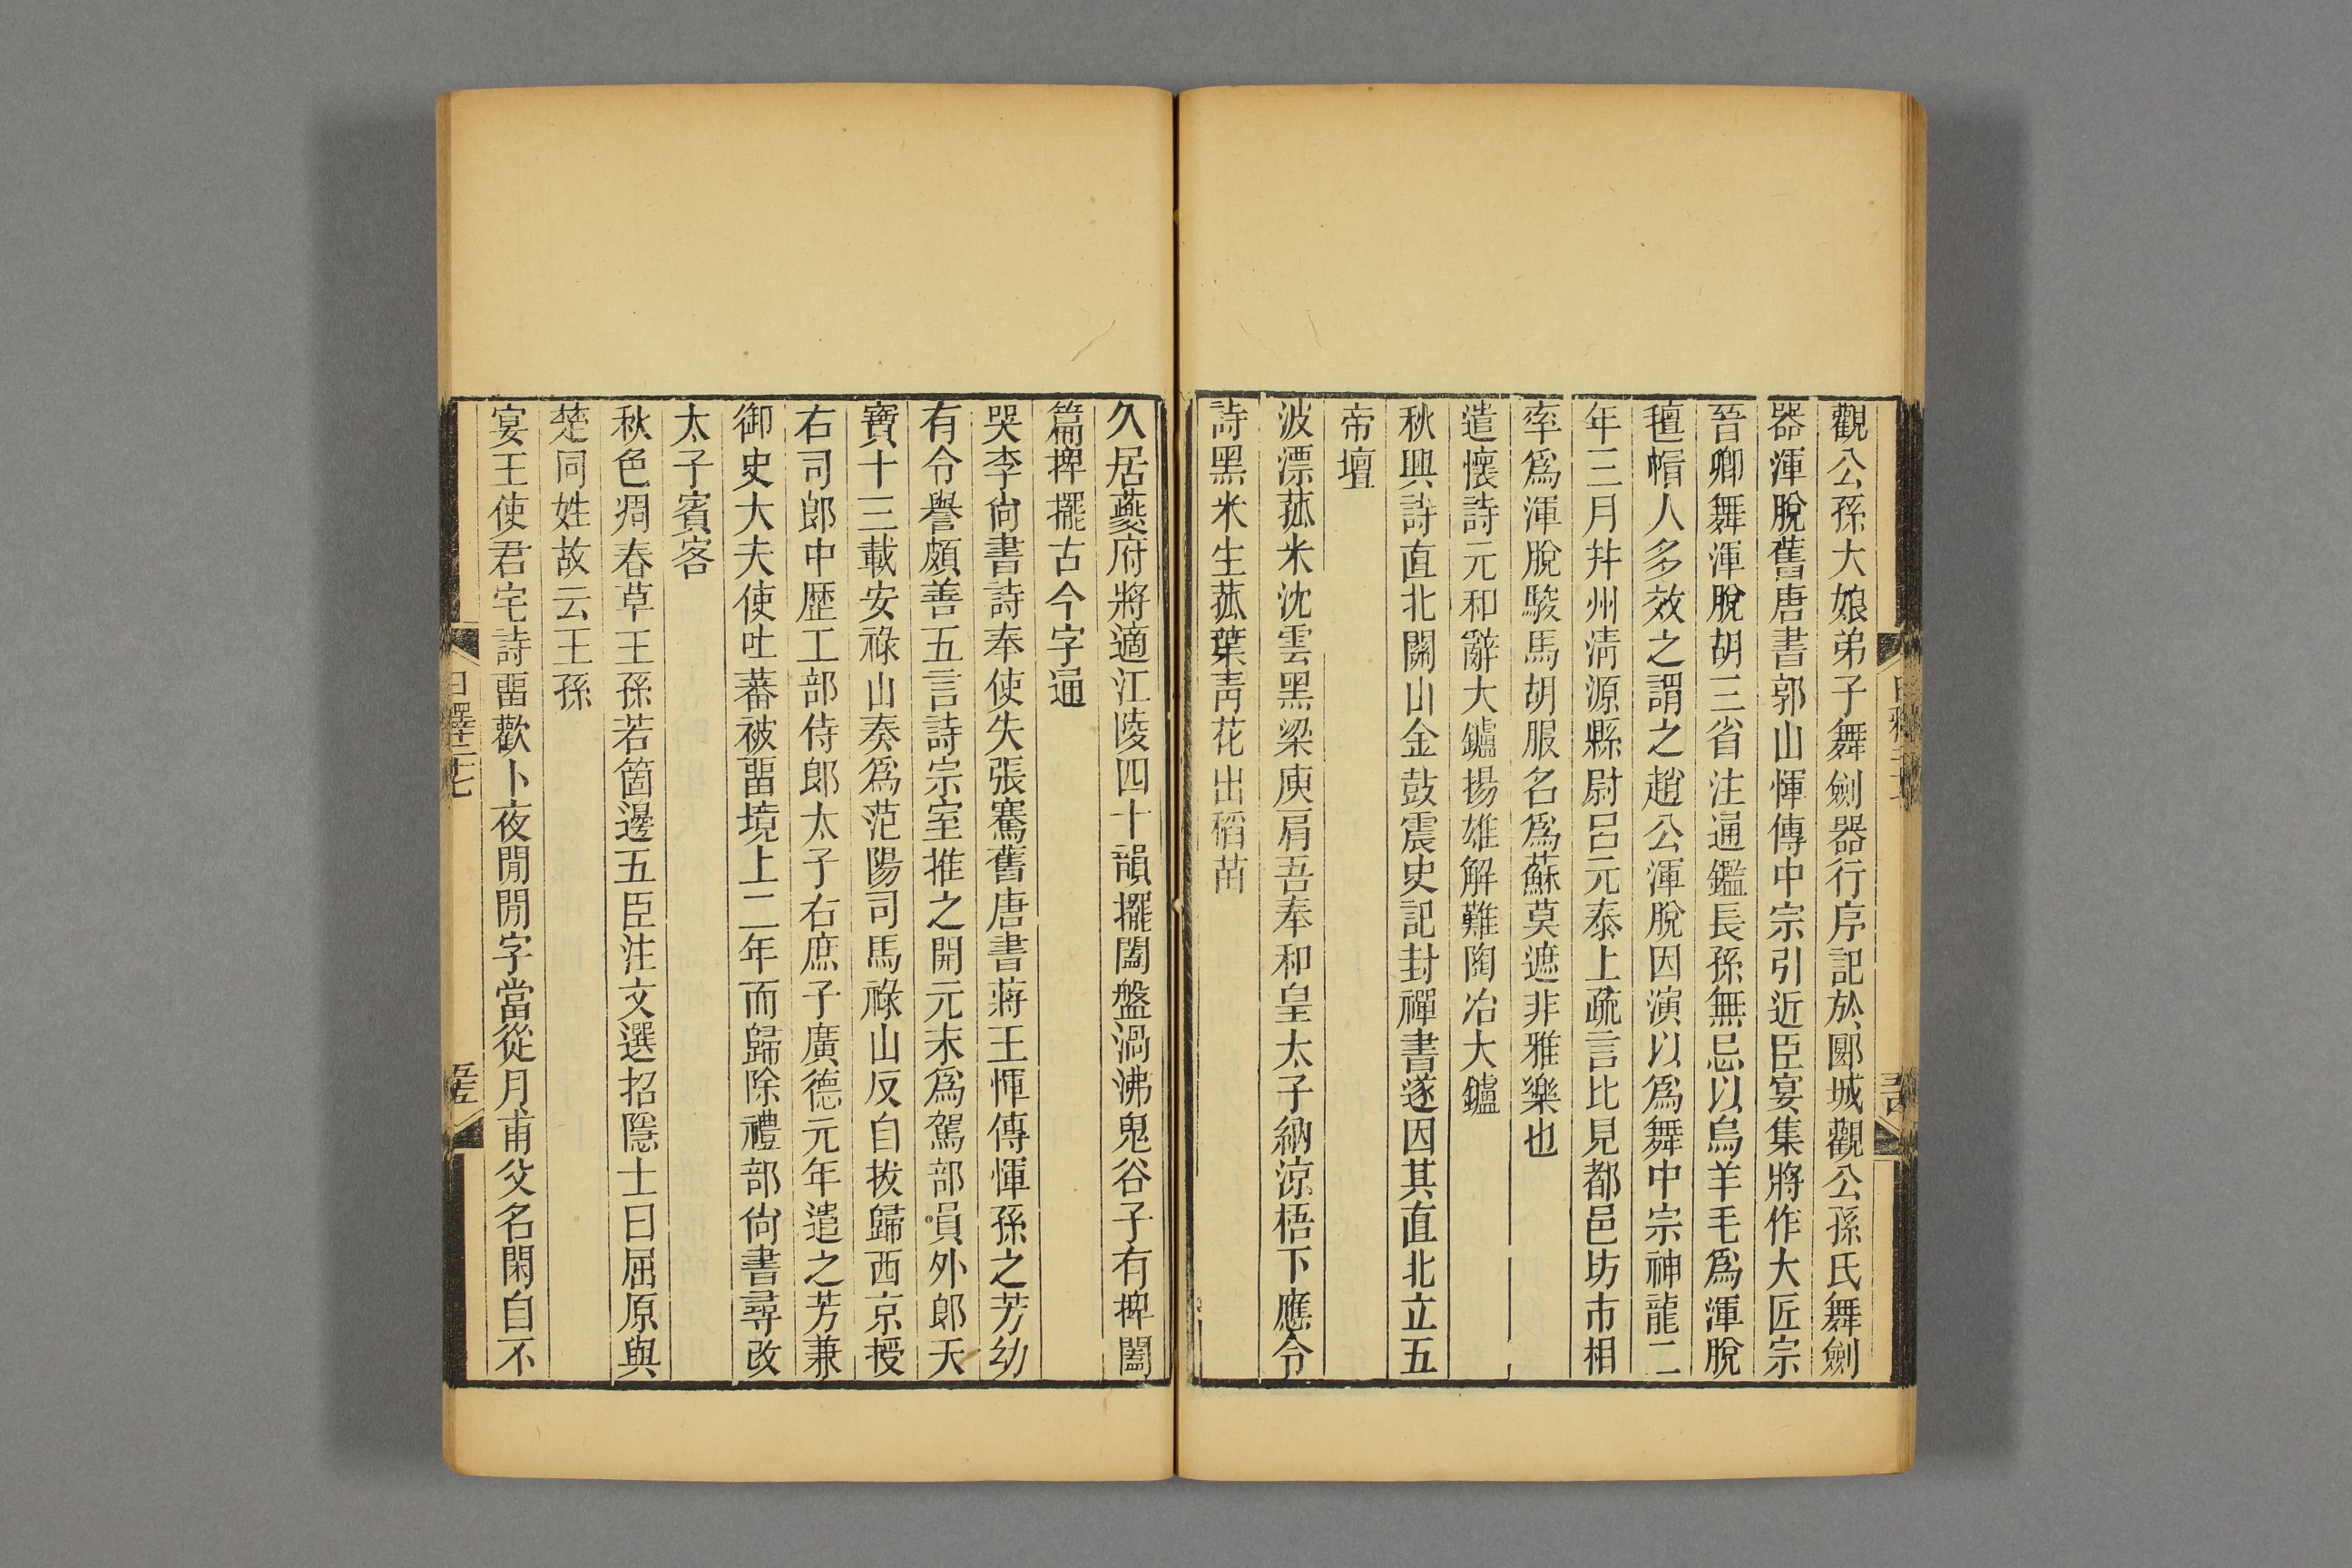 觀公孫大娘弟子舞劍器行序記於郾城觀公孫氏舞劍
器渾脫舊唐書郭山惲傳中宗引近臣宴集將作大匠宗
晉卿舞渾脫胡三省注通鑑長孫無忌以烏羊毛爲渾脫
氊帽人多效之謂之趙公渾脫因演以爲舞中宗神龍二
年三月幷州淸源縣尉呂元泰上疏言比見都邑坊市相
率爲渾脫駿馬胡服名爲蘇莫遮非雅樂也
遣懷詩元和辭大鑪揚雄解難陶冶大鑪
秋興詩直北關山金鼓震史記封禪書遂因其直北立五
帝壇
波漂菰米沈雲黑梁庾肩吾奉和皇太子納涼梧下應令
詩黑米生菰葉靑花出稻苗
久居夔府將適江陵四十韻擺闔盤渦沸鬼谷子有捭闔
篇捭擺古今字通
哭李尙書詩奉使失張騫舊唐書蔣王惲傳惲孫之芳幼
有令譽頗善五言詩宗室推之開元末爲駕部員外郞天
寶十三載安祿山奏爲范陽司馬祿山反自拔歸西京授
右司郞中歷工部侍郞太子右庶子廣德元年遣之芳兼
御史大夫使吐蕃被畱境上二年而歸除禮部尙書尋改
太子賓客
秋色凋春草王孫若箇邊五臣注文選招隱士曰屈原與
楚同姓故云王孫
宴王使君宅詩畱歡卜夜閒閒字當從月甫父名閑自不
日釋二十七